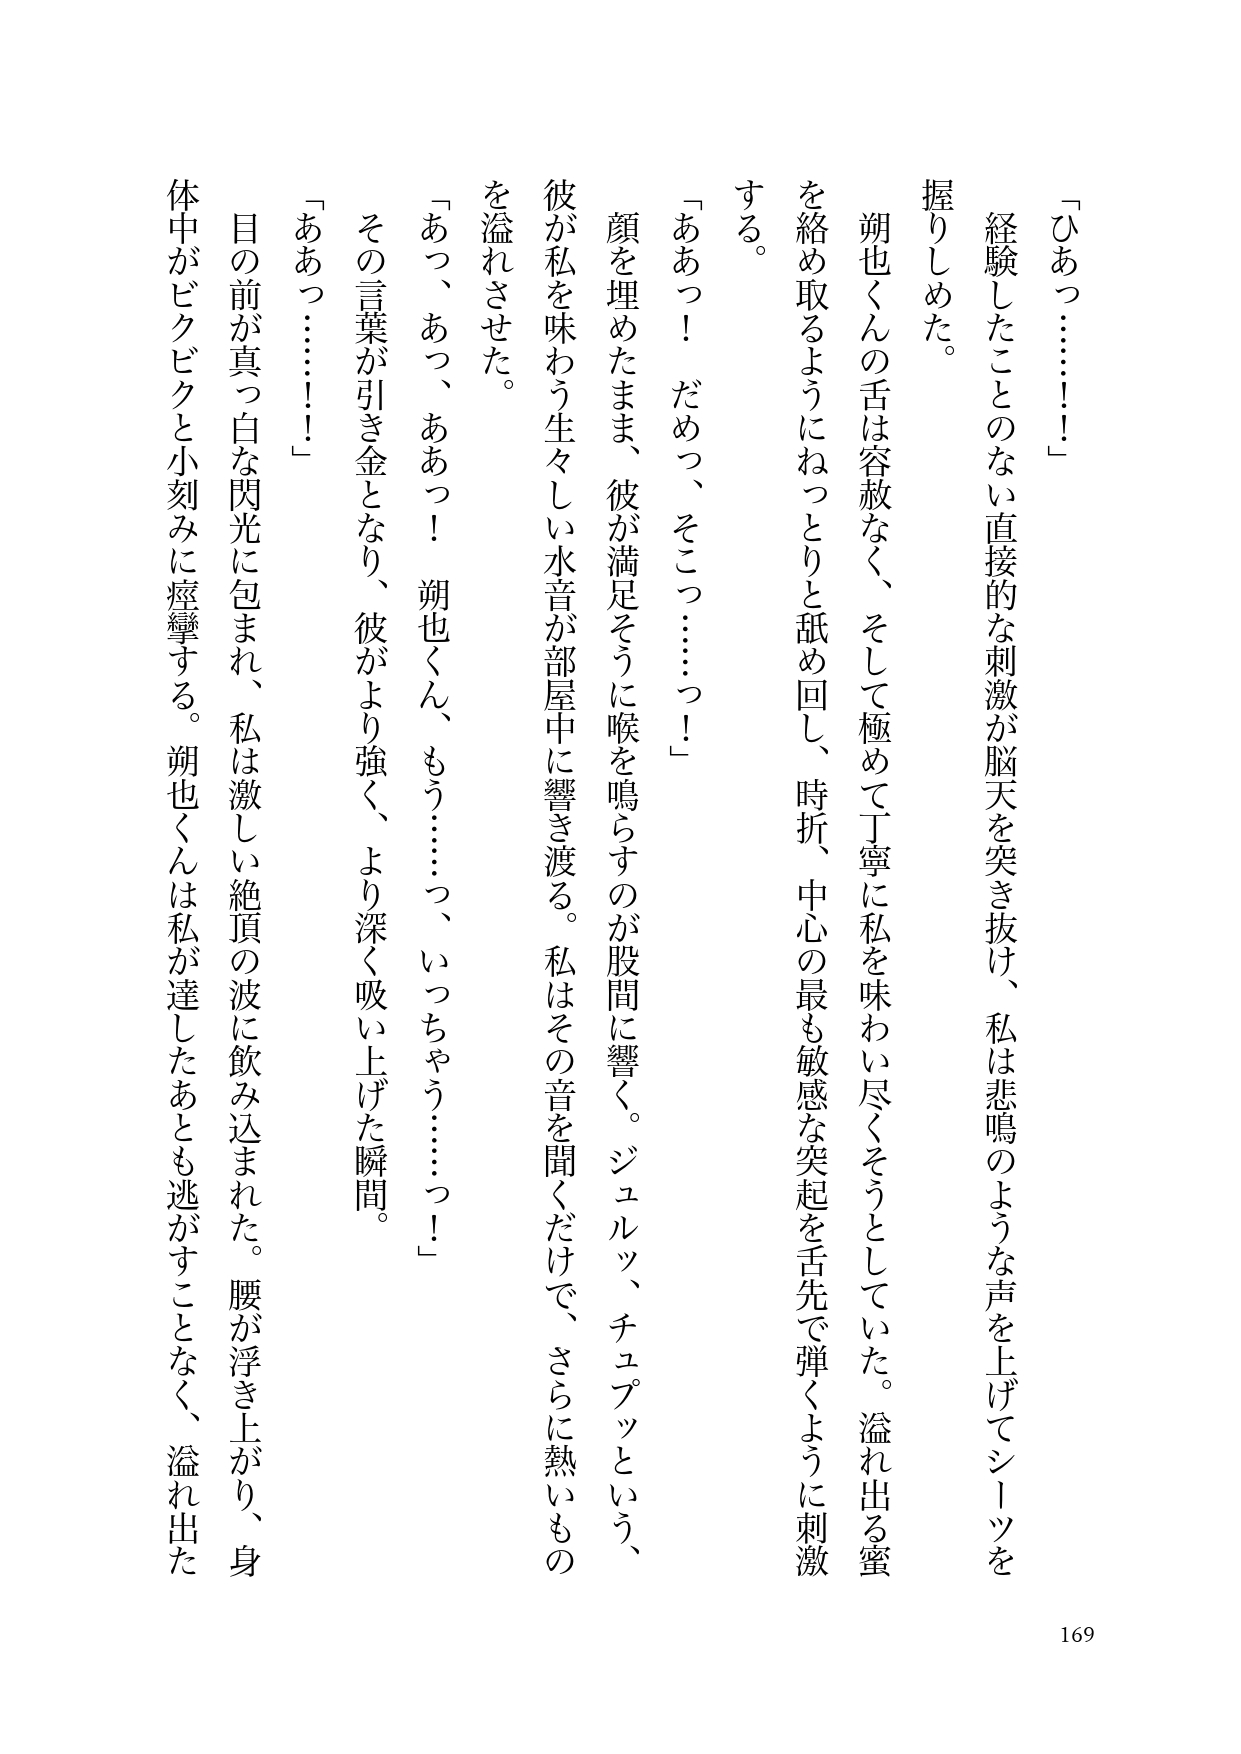 「ひあっ……！！」
　経験したことのない直接的な刺激が脳天を突き抜け、私は悲鳴のような声を上げてシーツを
握りしめた。
　朔也くんの舌は容赦なく、そして極めて丁寧に私を味わい尽くそうとしていた。溢れ出る蜜
を絡め取るようにねっとりと舐め回し、時折、中心の最も敏感な突起を舌先で弾くように刺激
する。
「ああっ！　だめっ、そこっ……っ！」
　顔を埋めたまま、彼が満足そうに喉を鳴らすのが股間に響く。ジュルッ、チュプッという、
彼が私を味わう生々しい水音が部屋中に響き渡る。私はその音を聞くだけで、さらに熱いもの
を溢れさせた。
「あっ、あっ、ああっ！　朔也くん、もう……っ、いっちゃう……っ！」
　その言葉が引き金となり、彼がより強く、より深く吸い上げた瞬間。
「ああっ……！！」
　目の前が真っ白な閃光に包まれ、私は激しい絶頂の波に飲み込まれた。腰が浮き上がり、身
体中がビクビクと小刻みに痙攣する。朔也くんは私が達したあとも逃がすことなく、溢れ出た
169